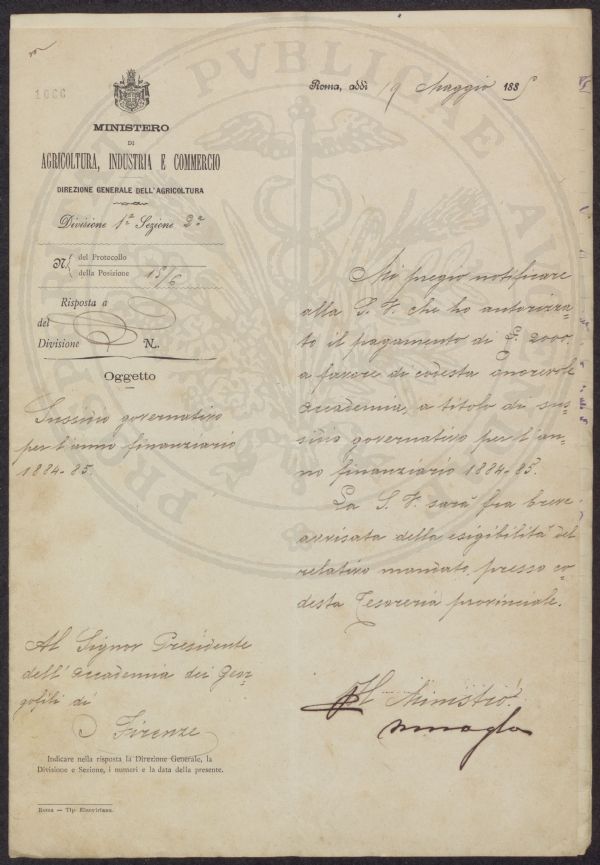 1666
MINISTERO
DI
AGRICOLTURA, INDUSTRIA E COMMERCIO
DIREZIONE GENERALE DELL'AGRICOLTURA
Divisione 1a Sezione 2a
N. del Protocollo
della Posizione 15/6
Risposta a
del
Divisione N.
Oggetto
Sussidio governativo
per l'anno finanziario
1884-85.
Roma, addì 19 Maggio 1885
Mi pregio notificare
alla S. V. che ho autorizza-
to il pagamento di £ 2000.
a favore di codesta onorevole
Accademia, a titolo di sus-
sidio governativo per l'an-
no finanziario 1884-85.
La S. V. sarà fra breve
avvisata della esigibilità del
relativo mandato presso co-
desta Tesoreria provinciale.
Il Ministro
Al Signor Presidente
dell'Accademia dei Geor-
gofili di
Firenze
Indicare nella risposta la Direzione Generale, la
Divisione e Sezione, i numeri e la data della presente.
Roma — Tip. Elzeviriana.